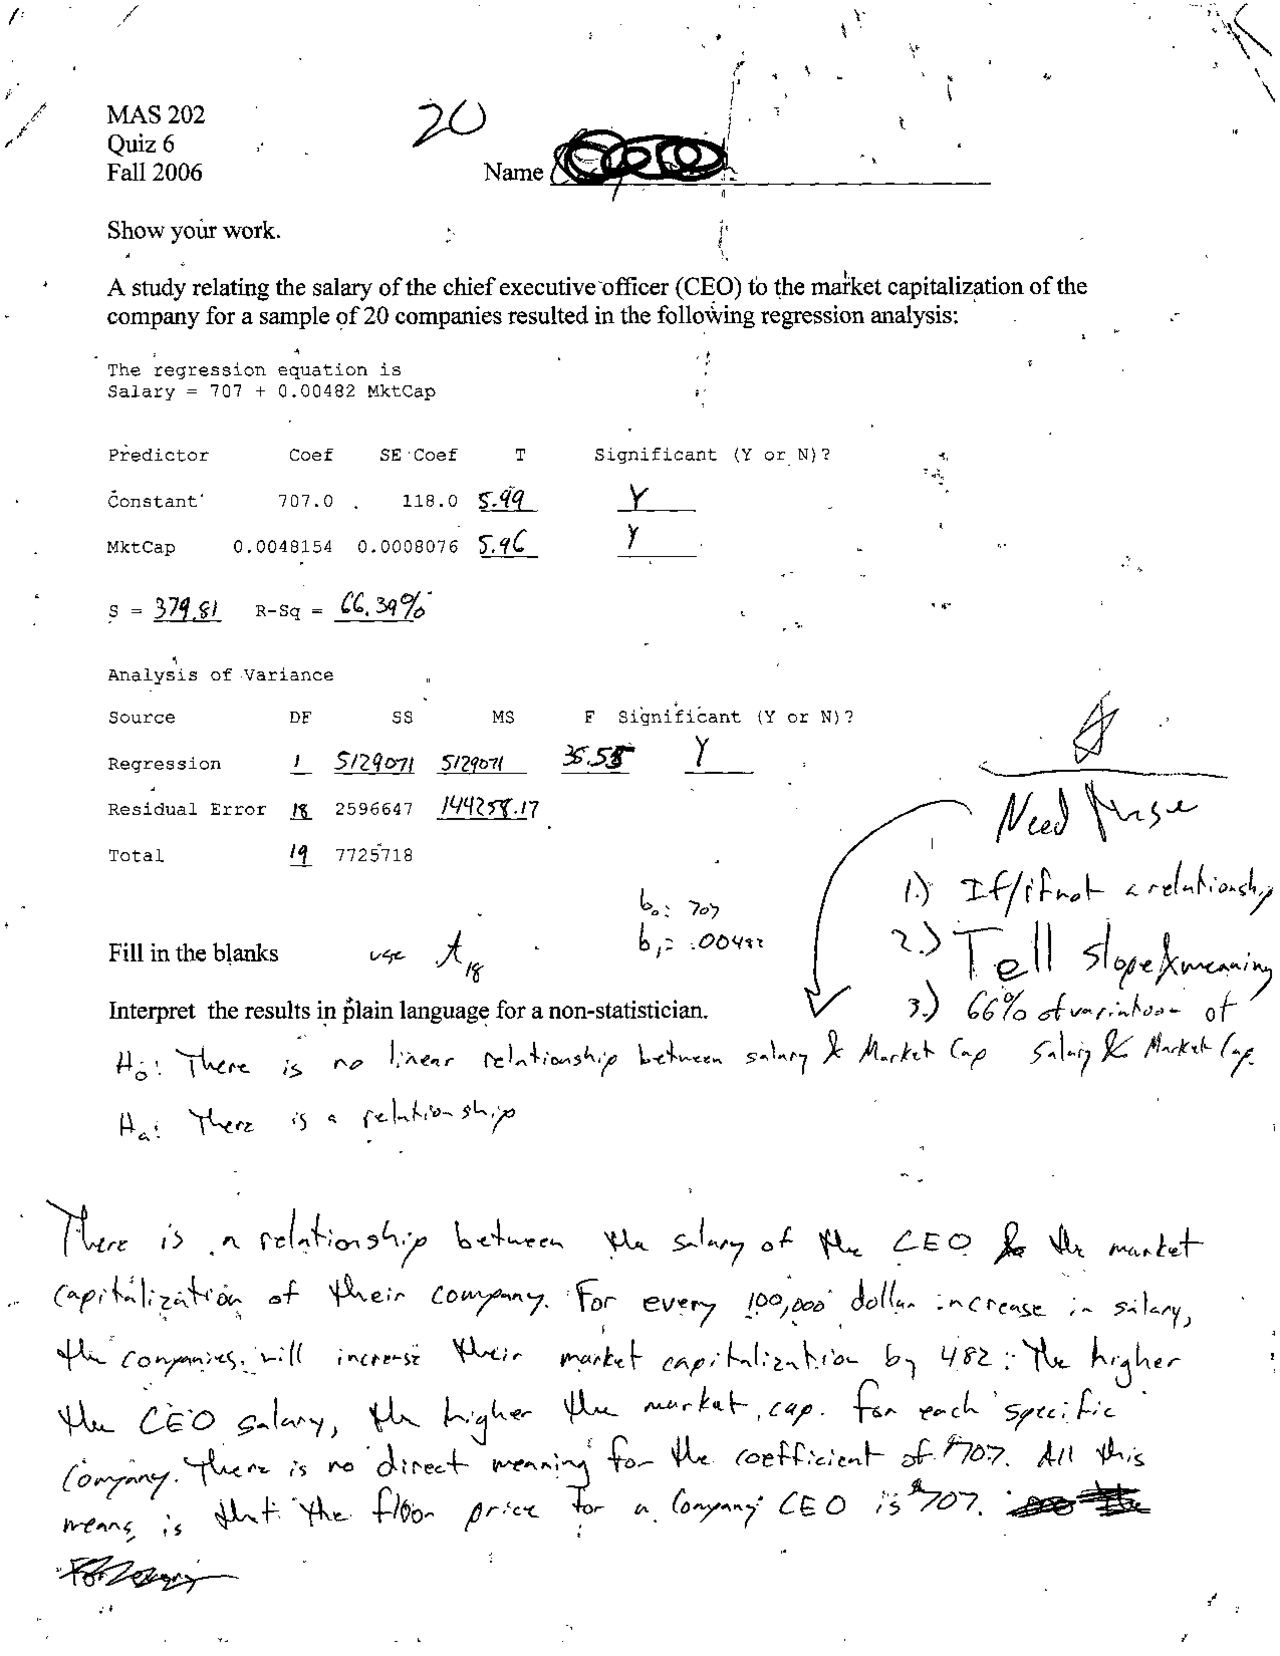 20
MAS 202
Quiz 6
Fall 2006
Name
Show your work.
A study relating the salary of the chief executive officer (CEO) to the market capitalization of the
company for a sample of 20 companies resulted in the following regression analysis:
The regression equation is
Salary = 707 + 0.00482 MktCap
Predictor Coef SE Coef T Significant (Y or N)?
Constant 707.0 118.0 5.99 Y
MktCap 0.0048154 0.0008076 5.96 Y
S = 379.81 R-Sq = 66.39%
Analysis of Variance
Source DF SS MS F Significant (Y or N)?
Regression 1 5129071 5129071 35.55 Y
Residual Error 18 2596647 144258.17
Total 19 7725718
Need
1.) If/if not a relationship
2.) Tell slope & meaning
3.) 66% of variation of
Salary & Market Cap.
b0: 707
b1= .00482
Fill in the blanks use t18
Interpret the results in plain language for a non-statistician.
Ho: There is no linear relationship between salary & Market Cap
Ha: There is a relationship
There is a relationship between the salary of the CEO & the market
capitalization of their company. For every 100,000 dollar increase in salary,
the companies will increase their market capitalization by 482. The higher
the CEO salary, the higher the market cap. for each specific
company. There is no direct meaning for the coefficient of $707. All this
means is that the floor price for a Company CEO is $707.